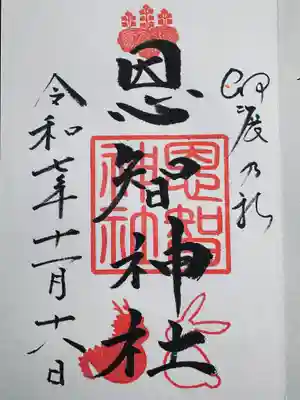 恩智神社
恩智
神社
令和七年十一月十八日